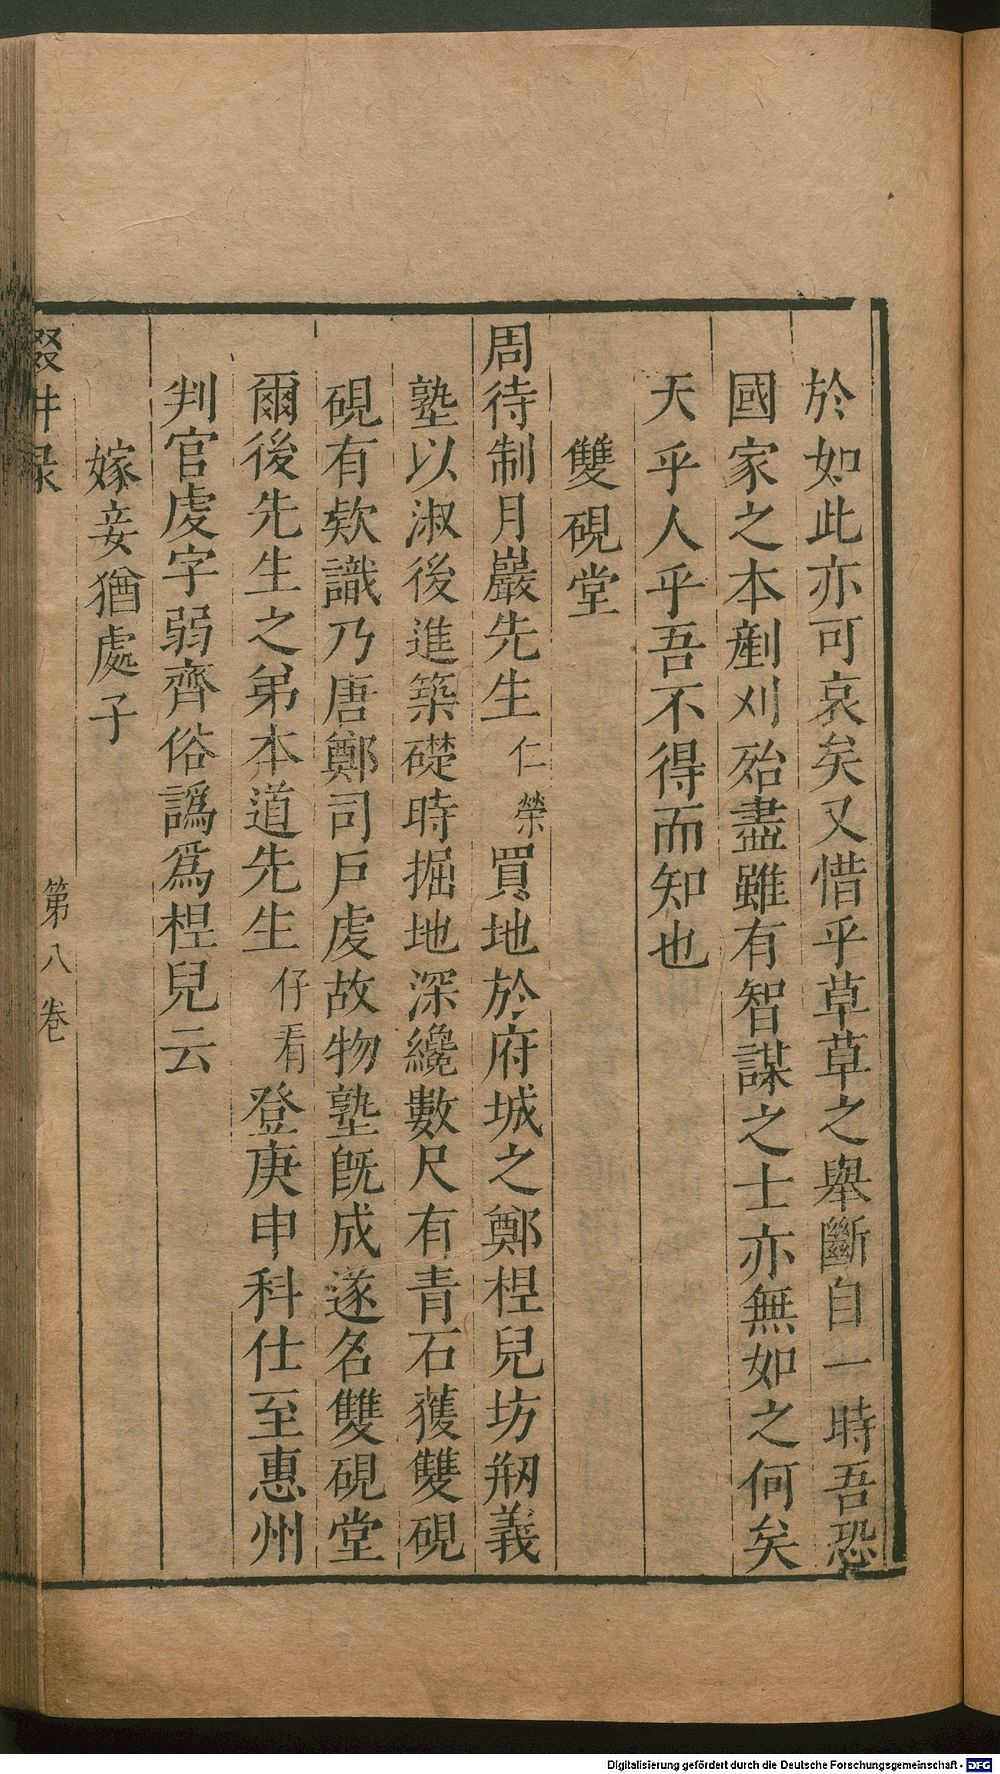 於如此亦可哀矣又惜乎草草之舉斷自一時吾恐
國家之本剷刈殆盡雖有智謀之士亦無如之何矣
天乎人乎吾不得而知也
雙硯堂
周待制月巖先生仁榮買地於府城之鄭桯兒坊刱義
塾以淑後進築礎時掘地深纔數尺有青石獲雙硯
硯有欵識乃唐鄭司戶虔故物塾旣成遂名雙硯堂
爾後先生之弟本道先生仔肩登庚申科仕至惠州
判官虔字弱齊俗譌爲桯兒云
嫁妾猶處子
輟耕录
第八卷
Digitalisierung gefördert durch die Deutsche Forschungsgemeinschaft - DFG